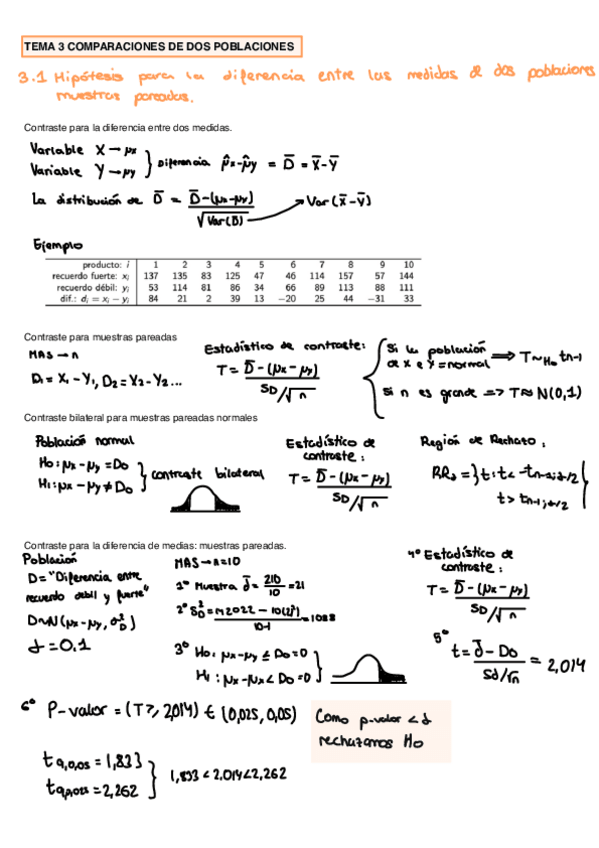 TEMA 3 COMPARACIONES DE DOS POBLACIONES
3.1 Hipótesis para la diferencia entre las medidas de dos poblaciones
muestras pareadas.
Contraste para la diferencia entre dos medidas.
Variable X → μx
Variable Y → μy } Diferencia μ̂x-μ̂y = D̄ = X̄-Ȳ
La distribución de D̄ = D̄-(μx-μy) / √Var(D̄) → Var(X̄-Ȳ)
Ejemplo
producto: i 1 2 3 4 5 6 7 8 9 10
recuerdo fuerte: xi 137 135 83 125 47 46 114 157 57 144
recuerdo débil: yi 53 114 81 86 34 66 89 113 88 111
dif.: di = xi − yi 84 21 2 39 13 −20 25 44 −31 33
Contraste para muestras pareadas
MAS → n
D1 = X1 - Y1, D2 = X2 - Y2 ...
Estadístico de contraste:
T = D̄ - (μx - μy) / SD/√n
Si la población
de X e Y = normal ⇒ T ~Ho tn-1
Si n es grande => T ≈ N(0,1)
Contraste bilateral para muestras pareadas normales
Población normal
Ho: μx - μy = Do
H1: μx - μy ≠ Do } contraste bilateral
Estadístico de
contraste:
T = D̄ - (μx - μy) / SD/√n
Región de Rechazo:
RRα = { t: t < -tn-1;α/2
t > tn-1;α/2 }
Contraste para la diferencia de medias: muestras pareadas.
Población
D = "Diferencia entre
recuerdo debil y fuerte"
D~N(μx - μy, σ²D)
α = 0.1
MAS → n=10
1º Muestra d̄ = 210/10 = 21
3º Ho: μx - μy ≤ Do = 0
H1: μx - μy < Do = 0
4º Estadístico de
contraste:
T = D̄ - (μx - μy) / SD/√n
5º t = d̄ - Do / Sd/√n = 2,014
6º P-valor = (T ≥, 2,014) ∈ (0,025, 0,05)
Como p-valor < α
rechazamos Ho
t9,0,05 = 1,833
t9,0,025 = 2,262 } 1,833 < 2,014 < 2,262